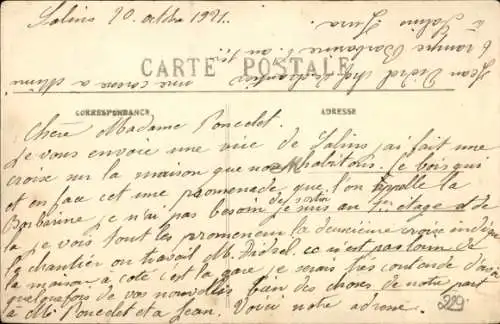 Salins 20 octobre 1921.
CARTE POSTALE
CORRESPONDANCE
ADRESSE
Chère Madame Poncelet.
Je vous envoie une vue de Salins j'ai fait une
croix sur la maison que nous habitons. le bois qui
et en face cet une promenade que l'on appelle la
Barbarine je n'ai pas besoin de sortir je suis au 1er étage et de
la je vois tout les promeneur la deuxième croix indique
le chantier ou travail M. Didrel. ce n'est pas loin de
la maison à coté c'est la gare je serais très contande d'avoir
quelquefois de vos nouvelles bien des choses de notre part
à Mr Poncelet et a Jean. Voici notre adresse.
Jean Didrel
rampe Barbarine
à Salins Jura
229